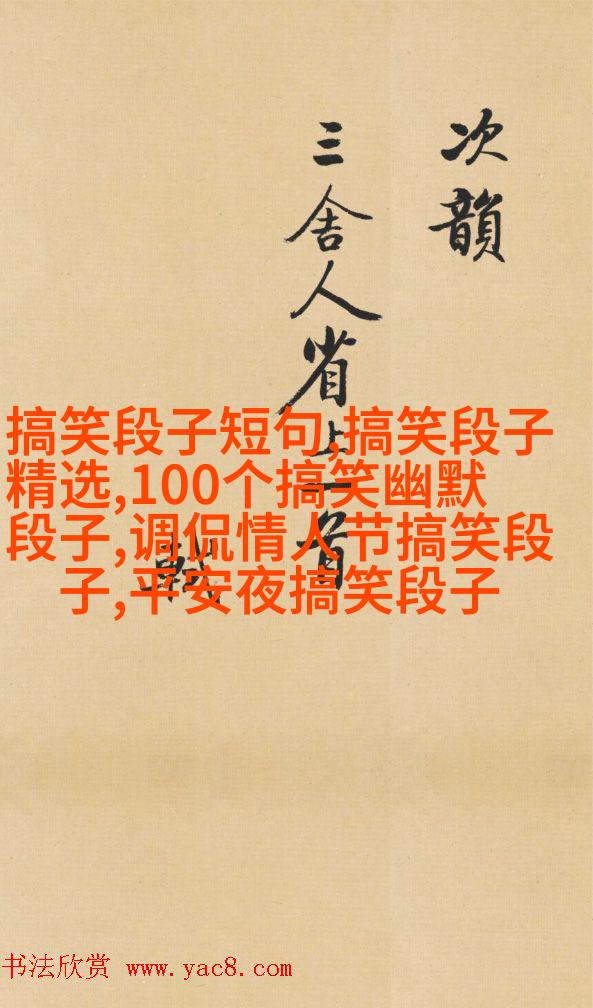 次韻
三舍人省上一首
軾
搞笑段子短句,搞笑段子
精选,100个搞笑幽默
段子,调侃情人节搞笑段
子,平安夜搞笑段子
书法欣赏 www.yac8.com